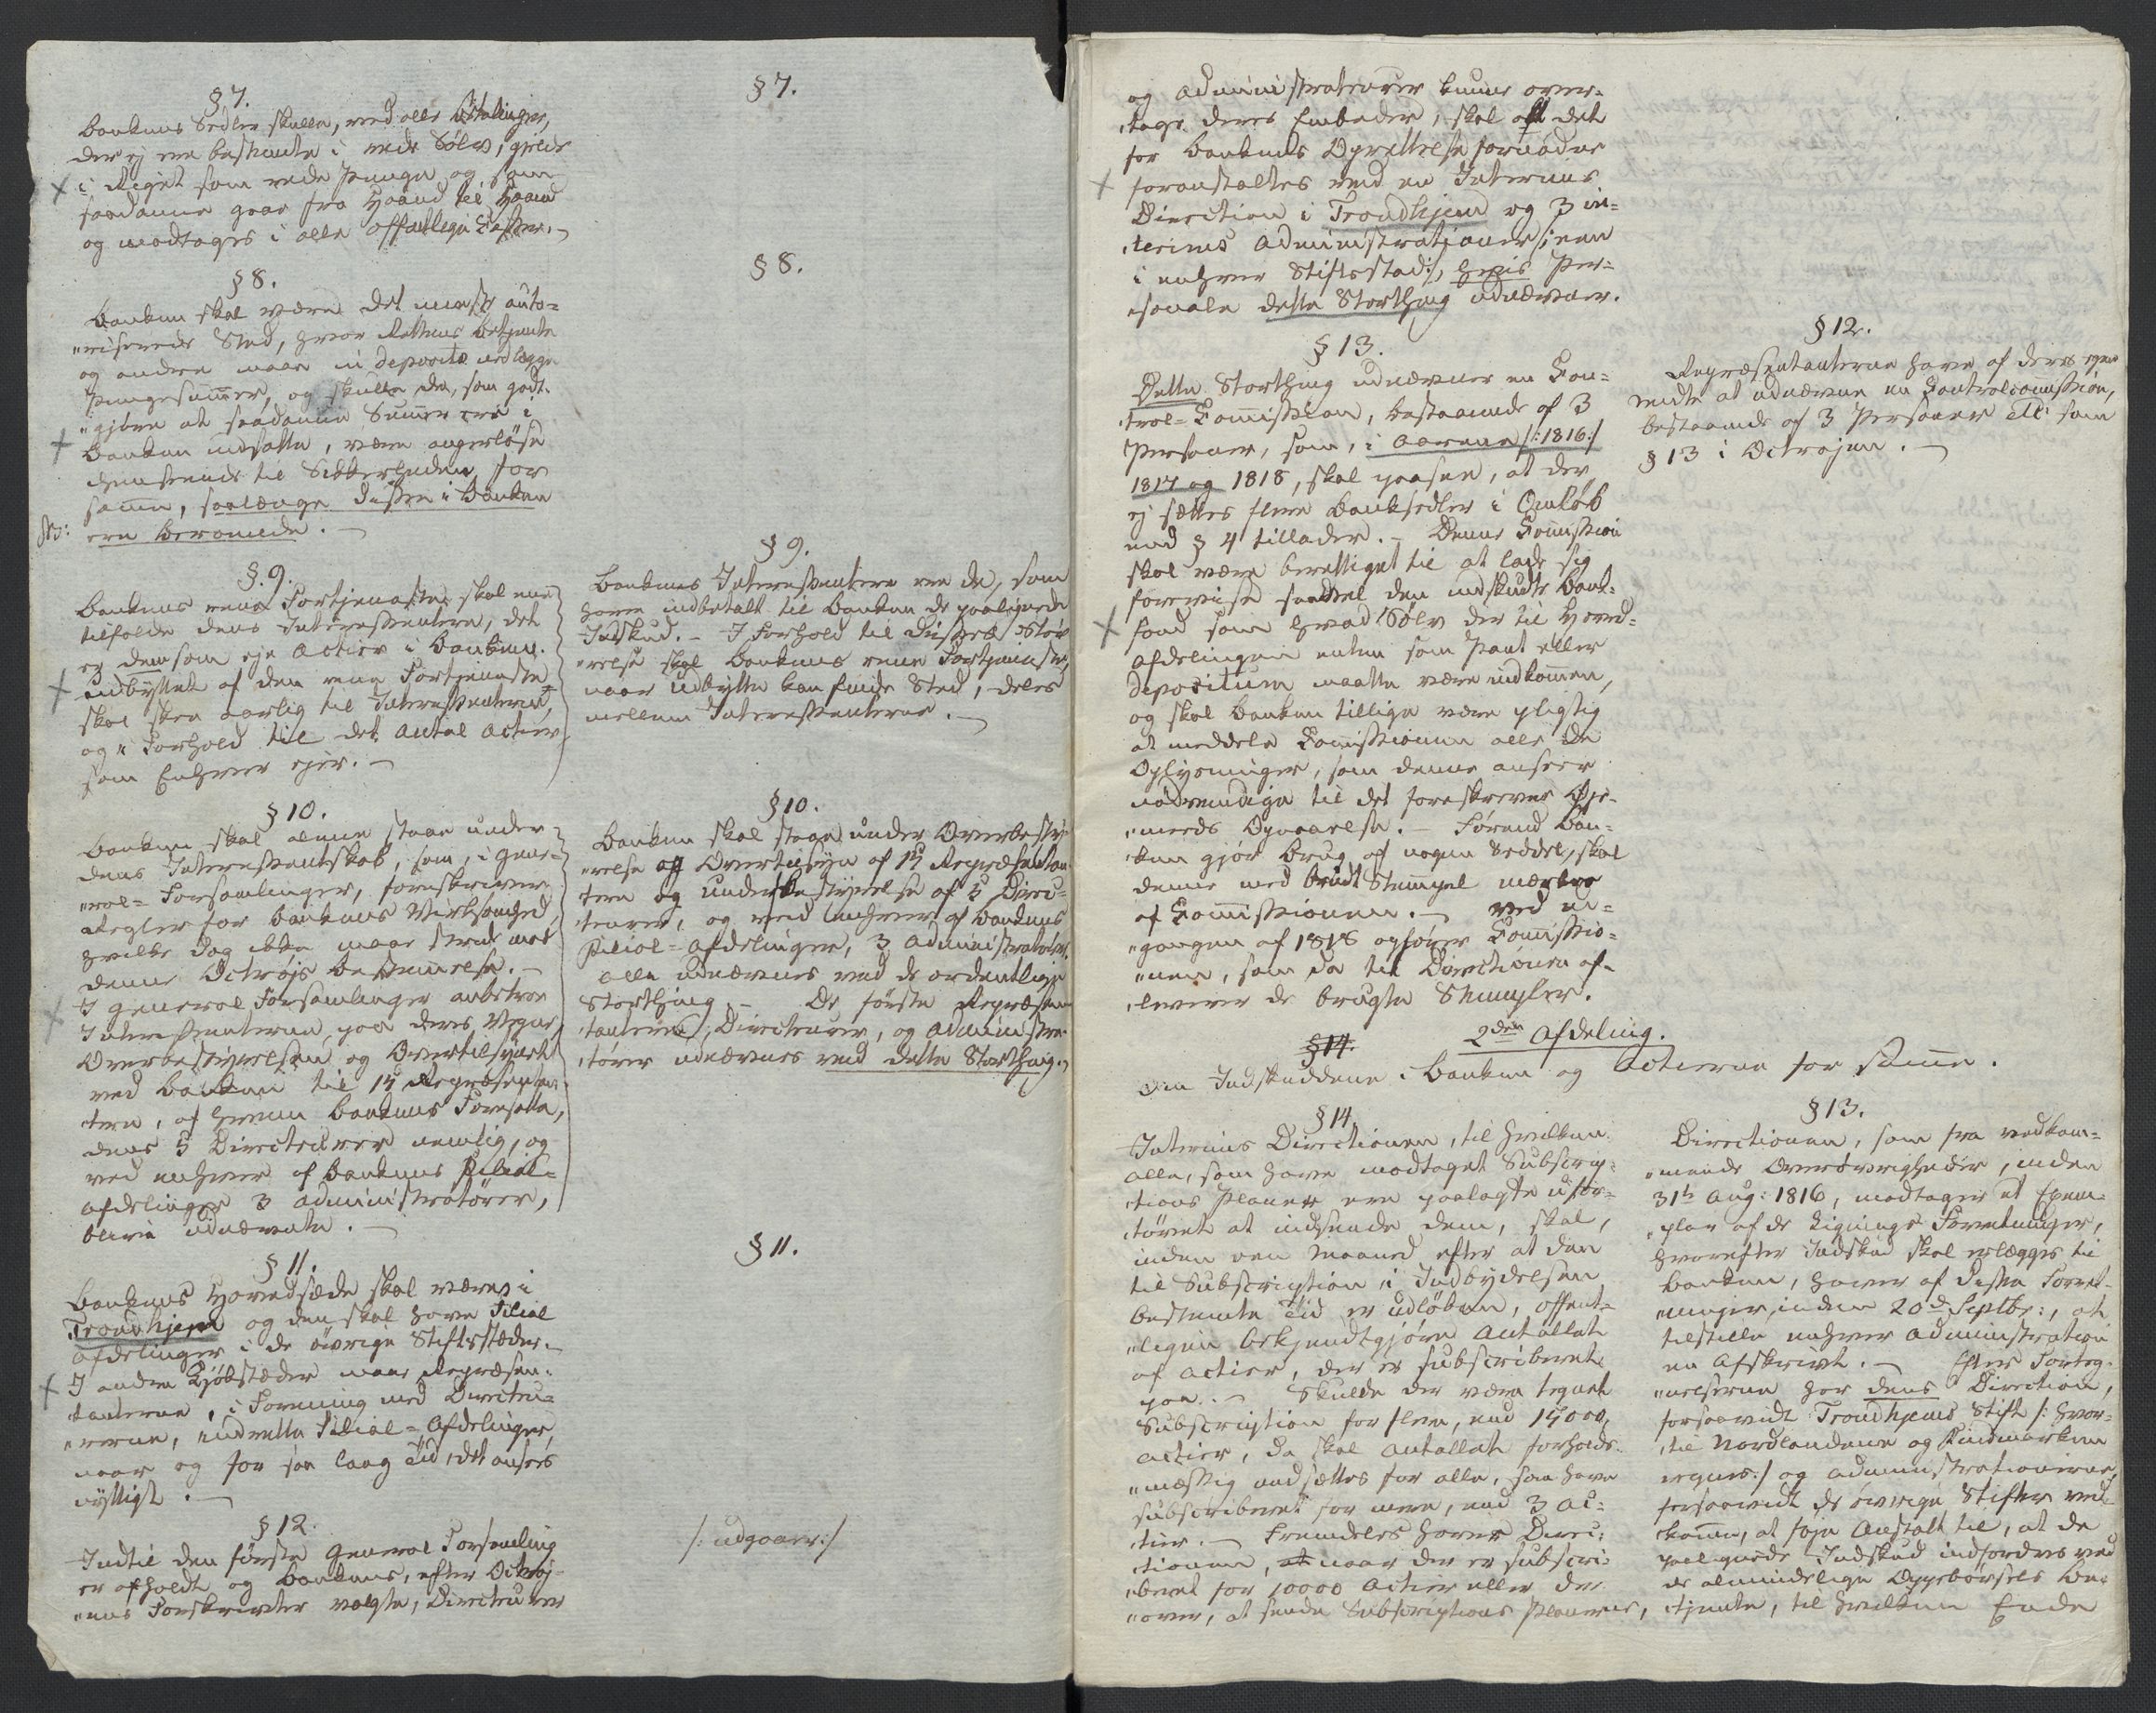 § 7.
Bankens Sedler skulle, ved alle Betalinger,
der ej ere bestemte i rede Sølv, gjelde
i Riget som rede Penge og som
saadanne gaae fra Haand til Haand
og modtages i alle offentlige Casser. -
§ 8.
Banken skal være det meest auto-
riserede Sted, hvor Rettens Betjente
og andre maae in deposito nedlægge
Pengesummer, og skulle de, som godt-
gjøre at saadanne Summer ere i
Banken indsatte, være angerløse
henseende til Sikkerheden for
samme, saalænge disse i Banken
NB: ere beroende. -
§. 9.
Bankens rene Fortjeneste skal ene
tilfalde dens Interessentere, det
er dem som eje Actier i Banken.
Udbyttet af den rene Fortjeneste
skal skee aarlig til Interessenterne,
og i Forhold til det Antal Actier
som Enhver ejer. -
§ 10.
Banken skal alene staae under
dens Interessentskab, som, i Gene-
ral-Forsamlinger, foreskriver
Regler for Bankens Virksomhed,
hvilke dog ikke maae stride mod
denne Octrojs Bestemmelse. -
I General Forsamlinger anbetroe
Interessenterne, paa deres Vegne,
Overbestyrelsen og Overtilsynet
ved Banken til 15 Repræsentan-
tere, af hvem Bankens Foresatte,
dens 5 Directeurer nemlig, og
ved enhver af Bankens Filial-
afdelinger 3 Administratörer,
blive udnævnte. -
§ 11.
Bankens Hovedsæde skal være i
Trondhjem og den skal have Filial
Afdelinger i de øvrige Stiftsstæder. -
I andre Kjøbstæder maae Repræsen-
tanterne, i Forening med Directeu-
rerne, indrette Filial-Afdelinger,
naar og for saa lang Tid, det ansees
nyttigt. -
§ 12.
Indtil den første General Forsamling
er afholdt og Bankens, efter Octroj-
ens Forskrivter valgte, Directeurer
§ 7.
§ 8.
§ 9.
Bankens Interessentere ere de, som
have indbetalt til Banken de paalignede
Indskud. - I Forhold til disses Stør-
relse skal Bankens rene Fortjeneste,
naar Udbytte kan finde Sted, deles
mellem Interessenterne. -
§ 10.
Banken skal staae under Overbesty-
relse og Overtilsyn af 15 Repræsentan-
tere og underbestyrelse af 5 Direc-
teurer, og ved enhver af Bankens
Filial-Afdelinger, 3 Administratører.
alle udnævnes ved de ordentlige
Storthing. - De første Repræsen-
tantere, Directeurer, og Administra-
törer udnævnes ved dette Storthing. -
§ 11.
/: udgaaer :/
og Administrateurer kunne over-
tage deres Embeder, skal alt det
for Bankens Oprettelse fornødne
foranstaltes ved en Interims
Direction i Trondhjem og 3 in-
terims Administrationer /: een
i enhver Stiftsstad :/, hvis Per-
sonale dette Storthing udnævner.
§ 13.
Dette Storthing udnævner en Con-
trol-Commission, bestaaende af 3
Personer, som, i Aarene /: 1816 :/
1817 og 1818, skal paasee, at der
ej sættes flere Banksedler i Omløb
end § 4 tillader. - Denne Commission
skal være berettiget til at lade sig
forevise saavel den indskudte Bank-
fond som hvad Sølv der til Hoved-
afdelingen enten som Pant eller
depositum maatte være indkommen,
og skal Banken tillige være pligtig
at meddele Commissionen alle de
Oplysninger, som denne anseer
nødvendige til det foreskrevne Øje-
meeds Opnaaelse. - Førend Ban-
ken gjør Brug af nogen Seddel, skal
denne med Stempel mærkes
af Commissionen. - Ved
gangen af 1818 ophører Commissio-
nen, som da til Directionen af-
leverer de brugte Stempler.
§ 14. 2den Afdeling.
Om Indskuddene i Banken og Actierne for samme.
§ 14.
Interims Directionen, til hvilken
alle, som have modtaget Subscrip-
tions Planer ere paalagte ufor-
tøvet at indsende dem, skal,
inden een Maaned efter at den
til Subscription i Indbydelsen
bestemte Tid er udløben, offent-
ligen bekjendtgjøre Antallet
af Actier, der er subscriberet
paa. - Skulde der være tegnet
Subscription for flere, end 15000
Actier, da skal Antallet forholds-
mæssig nedsættes for alle, som have
subscriberet for mere, end 3 Ac-
tier. - Fremdeles haver Direc-
tionen, at naar der er subscri-
beret for 10000 Actier eller der
over, at sende Subscriptions Planerne,
§ 12.
Repræsentanterne have af deres egen
Midte at udnævne en Controlcommission,
bestaaende af 3 Personer etc: som
§ 13 i Octrojen. -
§ 13.
Directionen, som fra vedkom-
mende Overøvrigheder, inden
31te Aug: 1816, modtager et Exem-
plar af de Lignings Forretninger,
hvorefter Indskud skal erlægges til
Banken, haver af disse Forret-
ninger, inden 20de Septbr:, at
tilstille enhver Administration
en Afskrivt. - Efter Forteg-
nelserne har dens Direction,
forsaavidt Trondhjems Stift /: hvor-
til Nordlandene og Findmarken
regnes :/ og Administrationerne,
forsaavidt de øvrige Stifter ved-
komme, at føje Anstalt til, at de
paalignede Indskud indfordres ved
de almindelige Oppebørsels Be-
tjente, til hvilken Ende